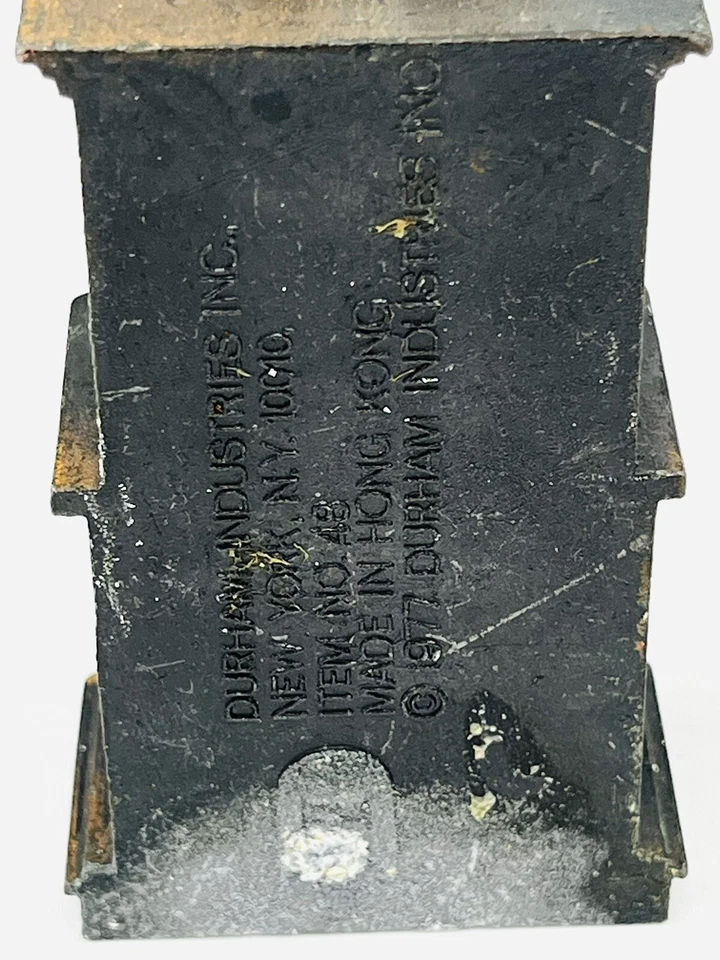 DURHAM INDUSTRIES INC.,
NEW YORK, N.Y. 10010.
ITEM NO. 48
MADE IN HONG KONG
© 1977 DURHAM INDUSTRIES INC